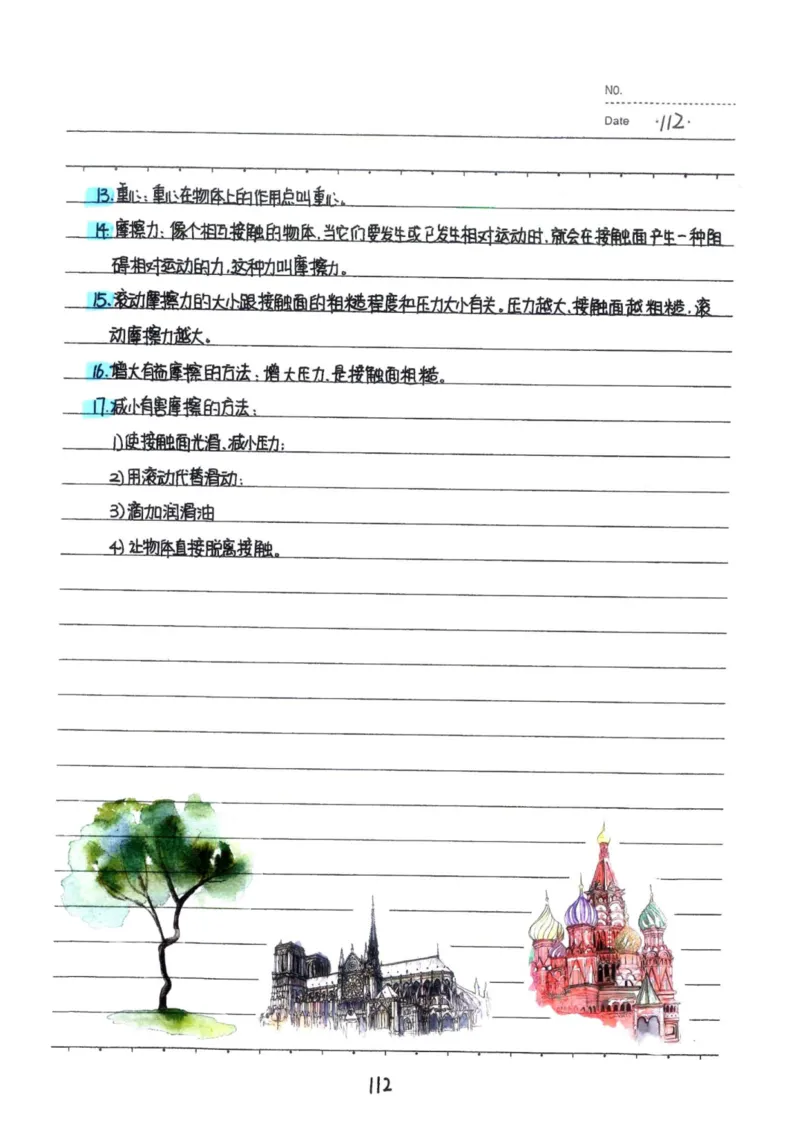 NO.
Date ·112·
13.重心:重心在物体上的作用点叫重心。
14.摩擦力:像个相互接触的物体,当它们要发生或已发生相对运动时,就会在接触面产生一种阻
碍相对运动的力,这种力叫摩擦力。
15.滚动摩擦力的大小跟接触面的粗糙程度和压力大小有关。压力越大、接触面越粗糙,滚
动摩擦力越大。
16.增大有益摩擦的方法:增大压力、是接触面粗糙。
17.减小有害摩擦的方法:
1)使接触面光滑、减小压力;
2)用滚动代替滑动;
3)滴加润滑油
4)让物体直接脱离接触。
112